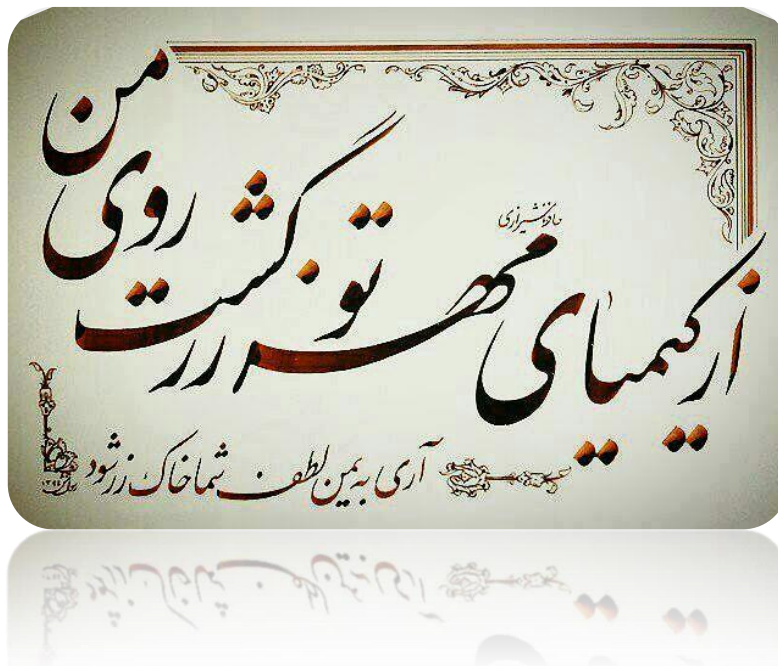 از کیمیای مهر تو زر گشت روی من
حافظ شیرازی
آری به یمن لطف شما خاک زر شود